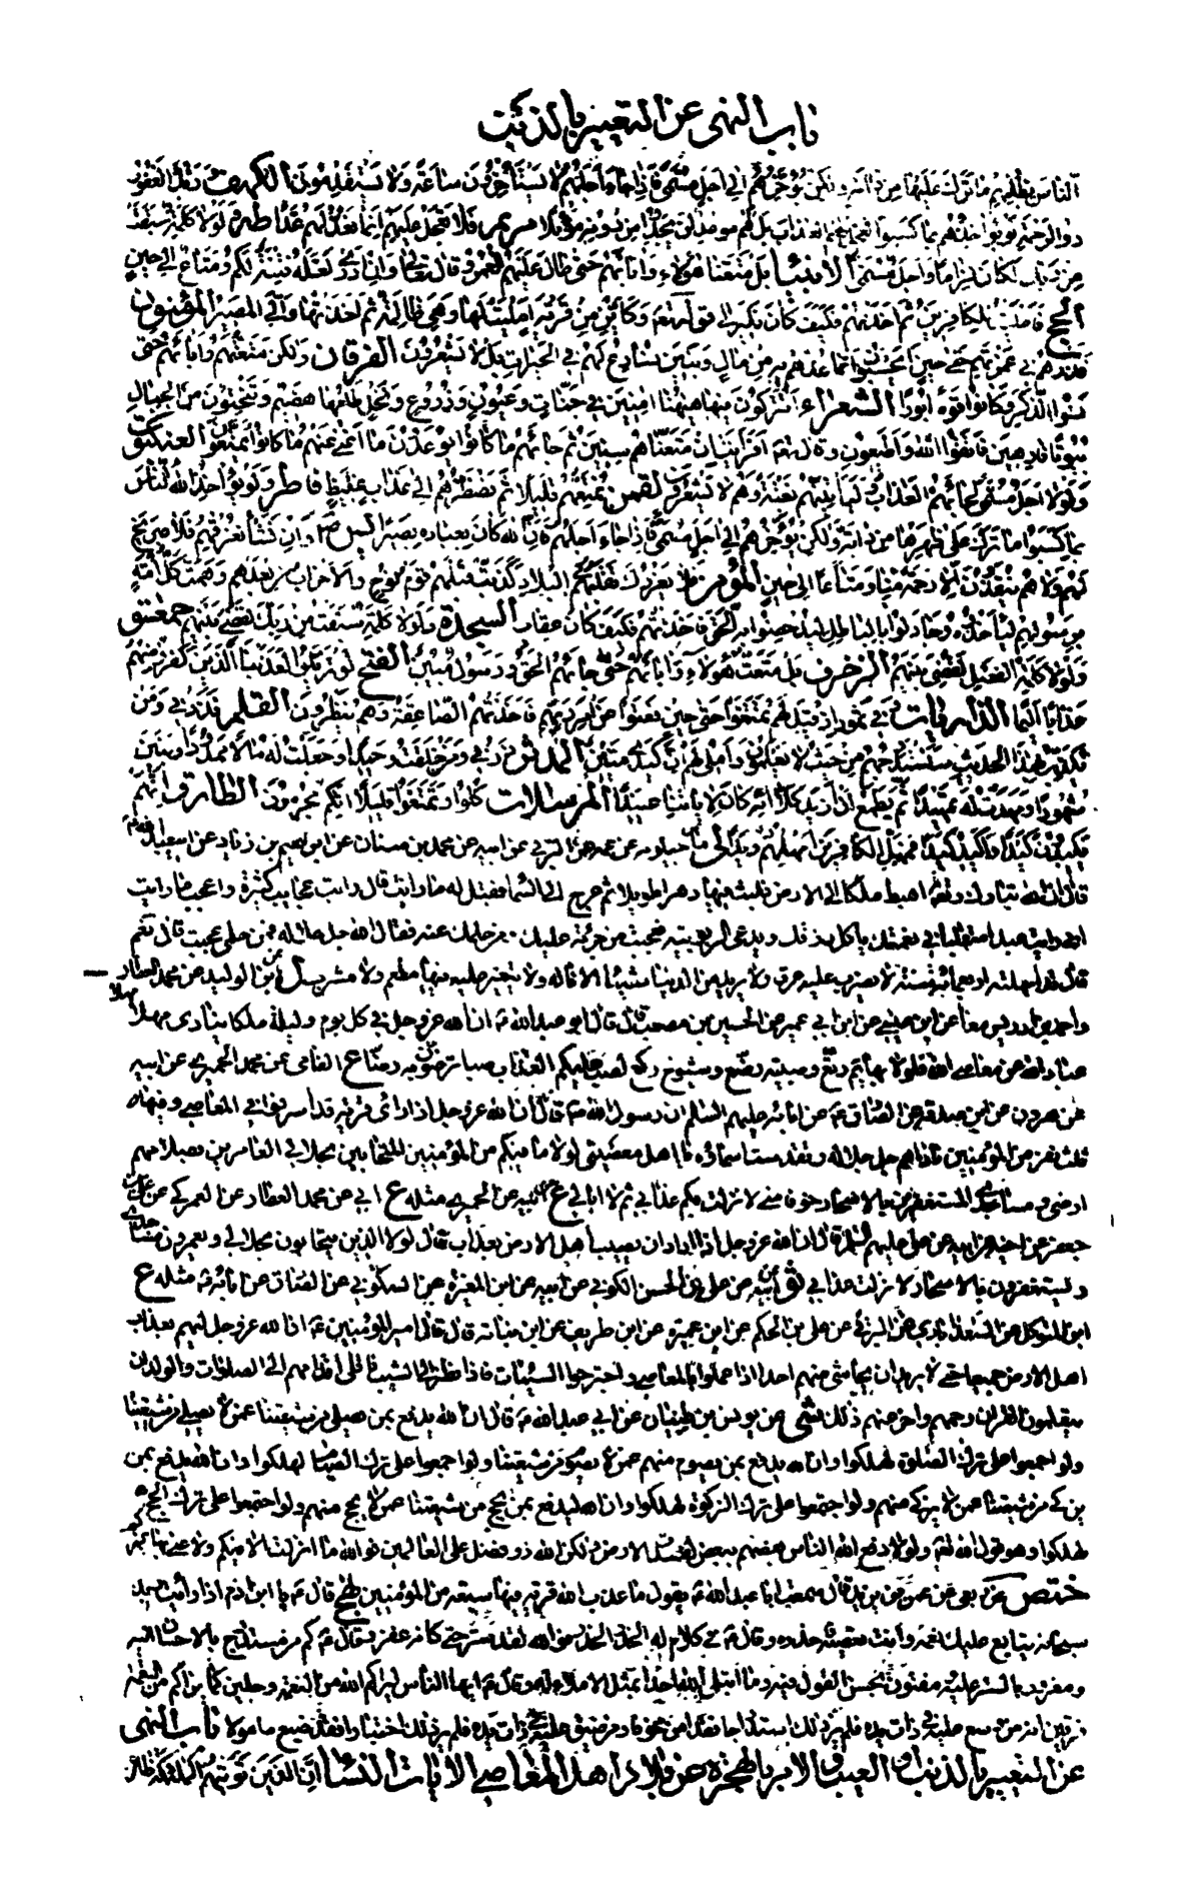 باب النهى عن التعيير بالذنب
الناس بظلمهم ما ترك عليها من دابة ولكن يؤخرهم الى اجل مسمى فاذا جاء اجلهم لا يستأخرون ساعة ولا يستقدمون الكهف وربك الغفور
ذو الرحمة لو يؤاخذهم بما كسبوا لعجل لهم العذاب بل لهم موعد لن يجدوا من دونه موئلا مريم فلا تعجل عليهم انما نعد لهم عدا طه ولولا كلمة سبقت
من ربك لكان لزاما واجل مسمى الأنبيا بل متعنا هؤلاء واباءهم حتى طال عليهم العمر وقال تعالى وان ادرى لعله فتنة لكم ومتاع الى حين
الحج فامليت للكافرين ثم اخذتهم فكيف كان نكير الى قوله تعالى وكاين من قرية امليت لها وهى ظالمة ثم اخذتها والى المصير المؤمنون
فذرهم فى غمرتهم حتى حين ايحسبون انما نمدهم به من مال وبنين نسارع لهم فى الخيرات بل لا يشعرون الفرقان ولكن متعتهم واباءهم حتى
نسوا الذكر وكانوا قوما بورا الشعراء اتتركون فيما هيهنا امنين فى جنات وعيون وزروع ونخل طلعها هضيم وتنحتون من الجبال
بيوتا فارهين فاتقوا الله واطيعون وقال تعالى افرايت ان متعناهم سنين ثم جاءهم ما كانوا يوعدون ما اغنى عنهم ما كانوا يمتعون العنكبوت
ولولا اجل مسمى لجاءهم العذاب وليأتينهم بغتة وهم لا يشعرون لقمن نمتعهم قليلا ثم نضطرهم الى عذاب غليظ فاطر ولو يؤاخذ الله الناس
بما كسبوا ما ترك على ظهرها من دابة ولكن يؤخرهم الى اجل مسمى فاذا جاء اجلهم فان الله كان بعباده بصيرا يس وان نشأ نغرقهم فلا صريخ
لهم ولا هم ينقذون الا رحمة منا ومتاعا الى حين المؤمن فلا يغررك تقلبهم فى البلاد كذبت قبلهم قوم نوح والاحزاب من بعدهم وهمت كل امة
برسولهم ليأخذوه وجادلوا بالباطل ليدحضوا به الحق فاخذتهم فكيف كان عقاب السجدة ولولا كلمة سبقت من ربك لقضى بينهم حمعسق
ولولا كلمة الفصل لقضى بينهم الزخرف بل متعت هؤلاء واباءهم حتى جاءهم الحق ورسول مبين الفتح لو تزيلوا لعذبنا الذين كفروا منهم
عذابا اليما الذاريات وفى ثمود اذ قيل لهم تمتعوا حتى حين فعتوا عن امر ربهم فاخذتهم الصاعقة وهم ينظرون القلم فذرنى ومن
يكذب بهذا الحديث سنستدرجهم من حيث لا يعلمون واملى لهم ان كيدى متين المدثر ذرنى ومن خلقت وحيدا وجعلت له مالا ممدودا وبنين
شهودا ومهدت له تمهيدا ثم يطمع ان ازيد كلا انه كان لاياتنا عنيدا المرسلات كلوا وتمتعوا قليلا انكم مجرمون الطارق انهم
يكيدون كيدا واكيد كيدا فمهل الكافرين امهلهم رويدا ماجيلويه عن عمه عن البرقى عن ابيه عن محمد بن سنان عن ابراهيم بن زياد عن
قال ان الله تبارك وتعالى اهبط ملكا الى الارض فلبث فيها دهرا طويلا ثم عرج الى السماء فقيل له ما رايت قال رايت عجايب كثيرة واعجب ما رايت
انى رايت عبدا متقلبا فى نعمتك ياكل رزقك ويدعى الربوبية فعجبت من جرئته عليك ومن حلمك عنه فقال الله جل جلاله فمن حلمى عجبت قال نعم
قال قد امهلته اربعمائة سنة لا يضرب عليه عرق ولا يريد من الدنيا شيئا الا ناله ولا يتغير عليه فيها مطعم ولا مشرب ل بن الوليد عن محمد العطار
واحمد بن ادريس معا عن ابن عيسى عن ابن ابى عمير عن الحسين بن مصعب قال قال ابو عبد الله ع ان لله عز وجل فى كل يوم وليلة ملكا ينادى مهلا مهلا
عباد الله عن معاصى الله فلولا بهايم رتع وصبية رضع وشيوخ ركع لصب عليكم العذاب صبا ترضون به رضا ع الفامى عن محمد الحميرى عن ابيه
عن هرون عن ابن صدقة عن الصادق ع عن ابائه عليهم السلم ان رسول الله ص قال ان الله عز وجل اذا راى قرية قد اسرفوا فى المعاصى وفيها
ثلثة نفر من المؤمنين ناداهم جل جلاله وتقدست اسماؤه يا اهل معصيتى لولا ما فيكم من المؤمنين المتحابين بجلالى العامرين بصلاتهم
ارضى ومساجدى المستغفرين بالاسحار خوفا منى لانزلت بكم عذابى ثم لا ابالى ع ابيه عن الحميرى مثله ع ابى عن محمد العطار عن العمركى عن على بن
جعفر عن اخيه عن ابيه عن على عليهم السلم قال ان الله عز وجل اذا اراد ان يصيب اهل الارض بعذاب قال لولا الذين يتحابون بجلالى ويعمرون مساجدى
ويستغفرون بالاسحار لانزلت عذابى ثو ابيه عن على بن الحسن الكوفى عن ابيه عن ابن المغيرة عن السكونى عن الصادق عن ابائه ع مثله ع
ابن المتوكل عن السعدابادى عن البرقى عن على بن الحكم عن ابن عميرة عن ابن طريف عن ابن نباتة قال قال امير المؤمنين ع ان الله عز وجل ليهم بعذاب
اهل الارض جميعا حتى لا يريد ان يحاشى منهم احدا اذا عملوا بالمعاصى واجترحوا السيئات فاذا نظر الى الشيب ناقلى اقدامهم الى الصلوات والولدان
يتعلمون القران رحمهم واخر عنهم ذلك شى عن يونس بن ظبيان عن ابى عبد الله ع قال ان الله يدفع بمن يصلى من شيعتنا عمن لا يصلى من شيعتنا
ولو اجمعوا على ترك الصلوة لهلكوا وان الله يدفع بمن يصوم منهم عمن لا يصوم من شيعتنا ولو اجمعوا على ترك الصيام لهلكوا وان الله يدفع بمن
يزكى من شيعتنا عمن لا يزكى منهم ولو اجتمعوا على ترك الزكوة لهلكوا وان الله ليدفع بمن يحج من شيعتنا عمن لا يحج منهم ولو اجتمعوا على ترك الحج
لهلكوا وهو قول الله تعالى ولولا دفع الله الناس بعضهم ببعض لفسدت الارض ولكن الله ذو فضل على العالمين فوالله ما انزلت الا فيكم ولا عنى بها غيركم
ختص عن بعض عن عمر بن يزيد قال سمعت ابا عبد الله ع يقول ما عذب الله قرية فيها سبعة من المؤمنين نهج قال ع يا ابن ادم اذا رايت ربك
سبحانه يتابع عليك نعمه وانت تعصيه فاحذره وقال ع فى كلام له الحذر الحذر فوالله لقد ستر حتى كانه غفر وقال ع كم من مستدرج بالاحسان اليه
ومغرور بالستر عليه ومفتون بحسن القول فيه وما ابتلى الله احدا بمثل الاملاء له وقال ع ايها الناس ليراكم الله من النعمة وجلين كما يراكم من النقمة
فرقين انه من وسع عليه فى ذات يده فلم ير ذلك استدراجا فقد امن مخوفا ومن ضيق عليه فى ذات يده فلم ير ذلك اختبارا فقد ضيع مامولا باب النهى
عن التعيير بالذنب او العيب والامر بالهجرة عن بلاد اهل المعاصى الأيات النسا ان الذين توفيهم الملئكة ظالمى